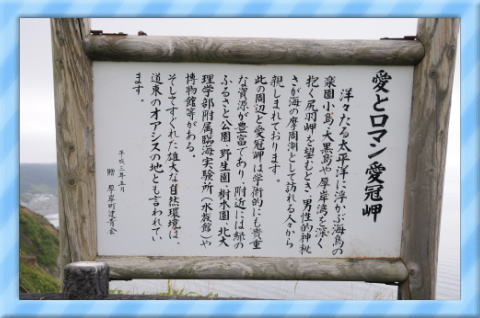 愛とロマン愛冠岬
洋々たる太平洋に浮かぶ海鳥の
楽園小島・大黒島や厚岸湾を深く
抱く尻羽岬を望むとき、男性的神秘
さが海の摩周湖として訪れる人々から
親しまれております。
此の周辺と愛冠岬は学術的にも貴重
な資源が豊富であり、附近には緑の
ふるさと公園・野生園・樹木園・北大
理学部附属臨海実験所(水族館)や
博物館等がある。
そしてすぐれた雄大な自然環境は、
道東のオアシスの地とも言われてい
ます。
平成三年五月
贈 厚岸町建青会